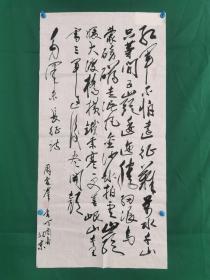 红军不怕远征难万水千山
只等闲五岭逶迤腾细浪乌
蒙磅礴走泥丸金沙水拍云崖
暖大渡桥横铁索寒更喜岷山千里
雪三军过后尽开颜
毛泽东长征诗